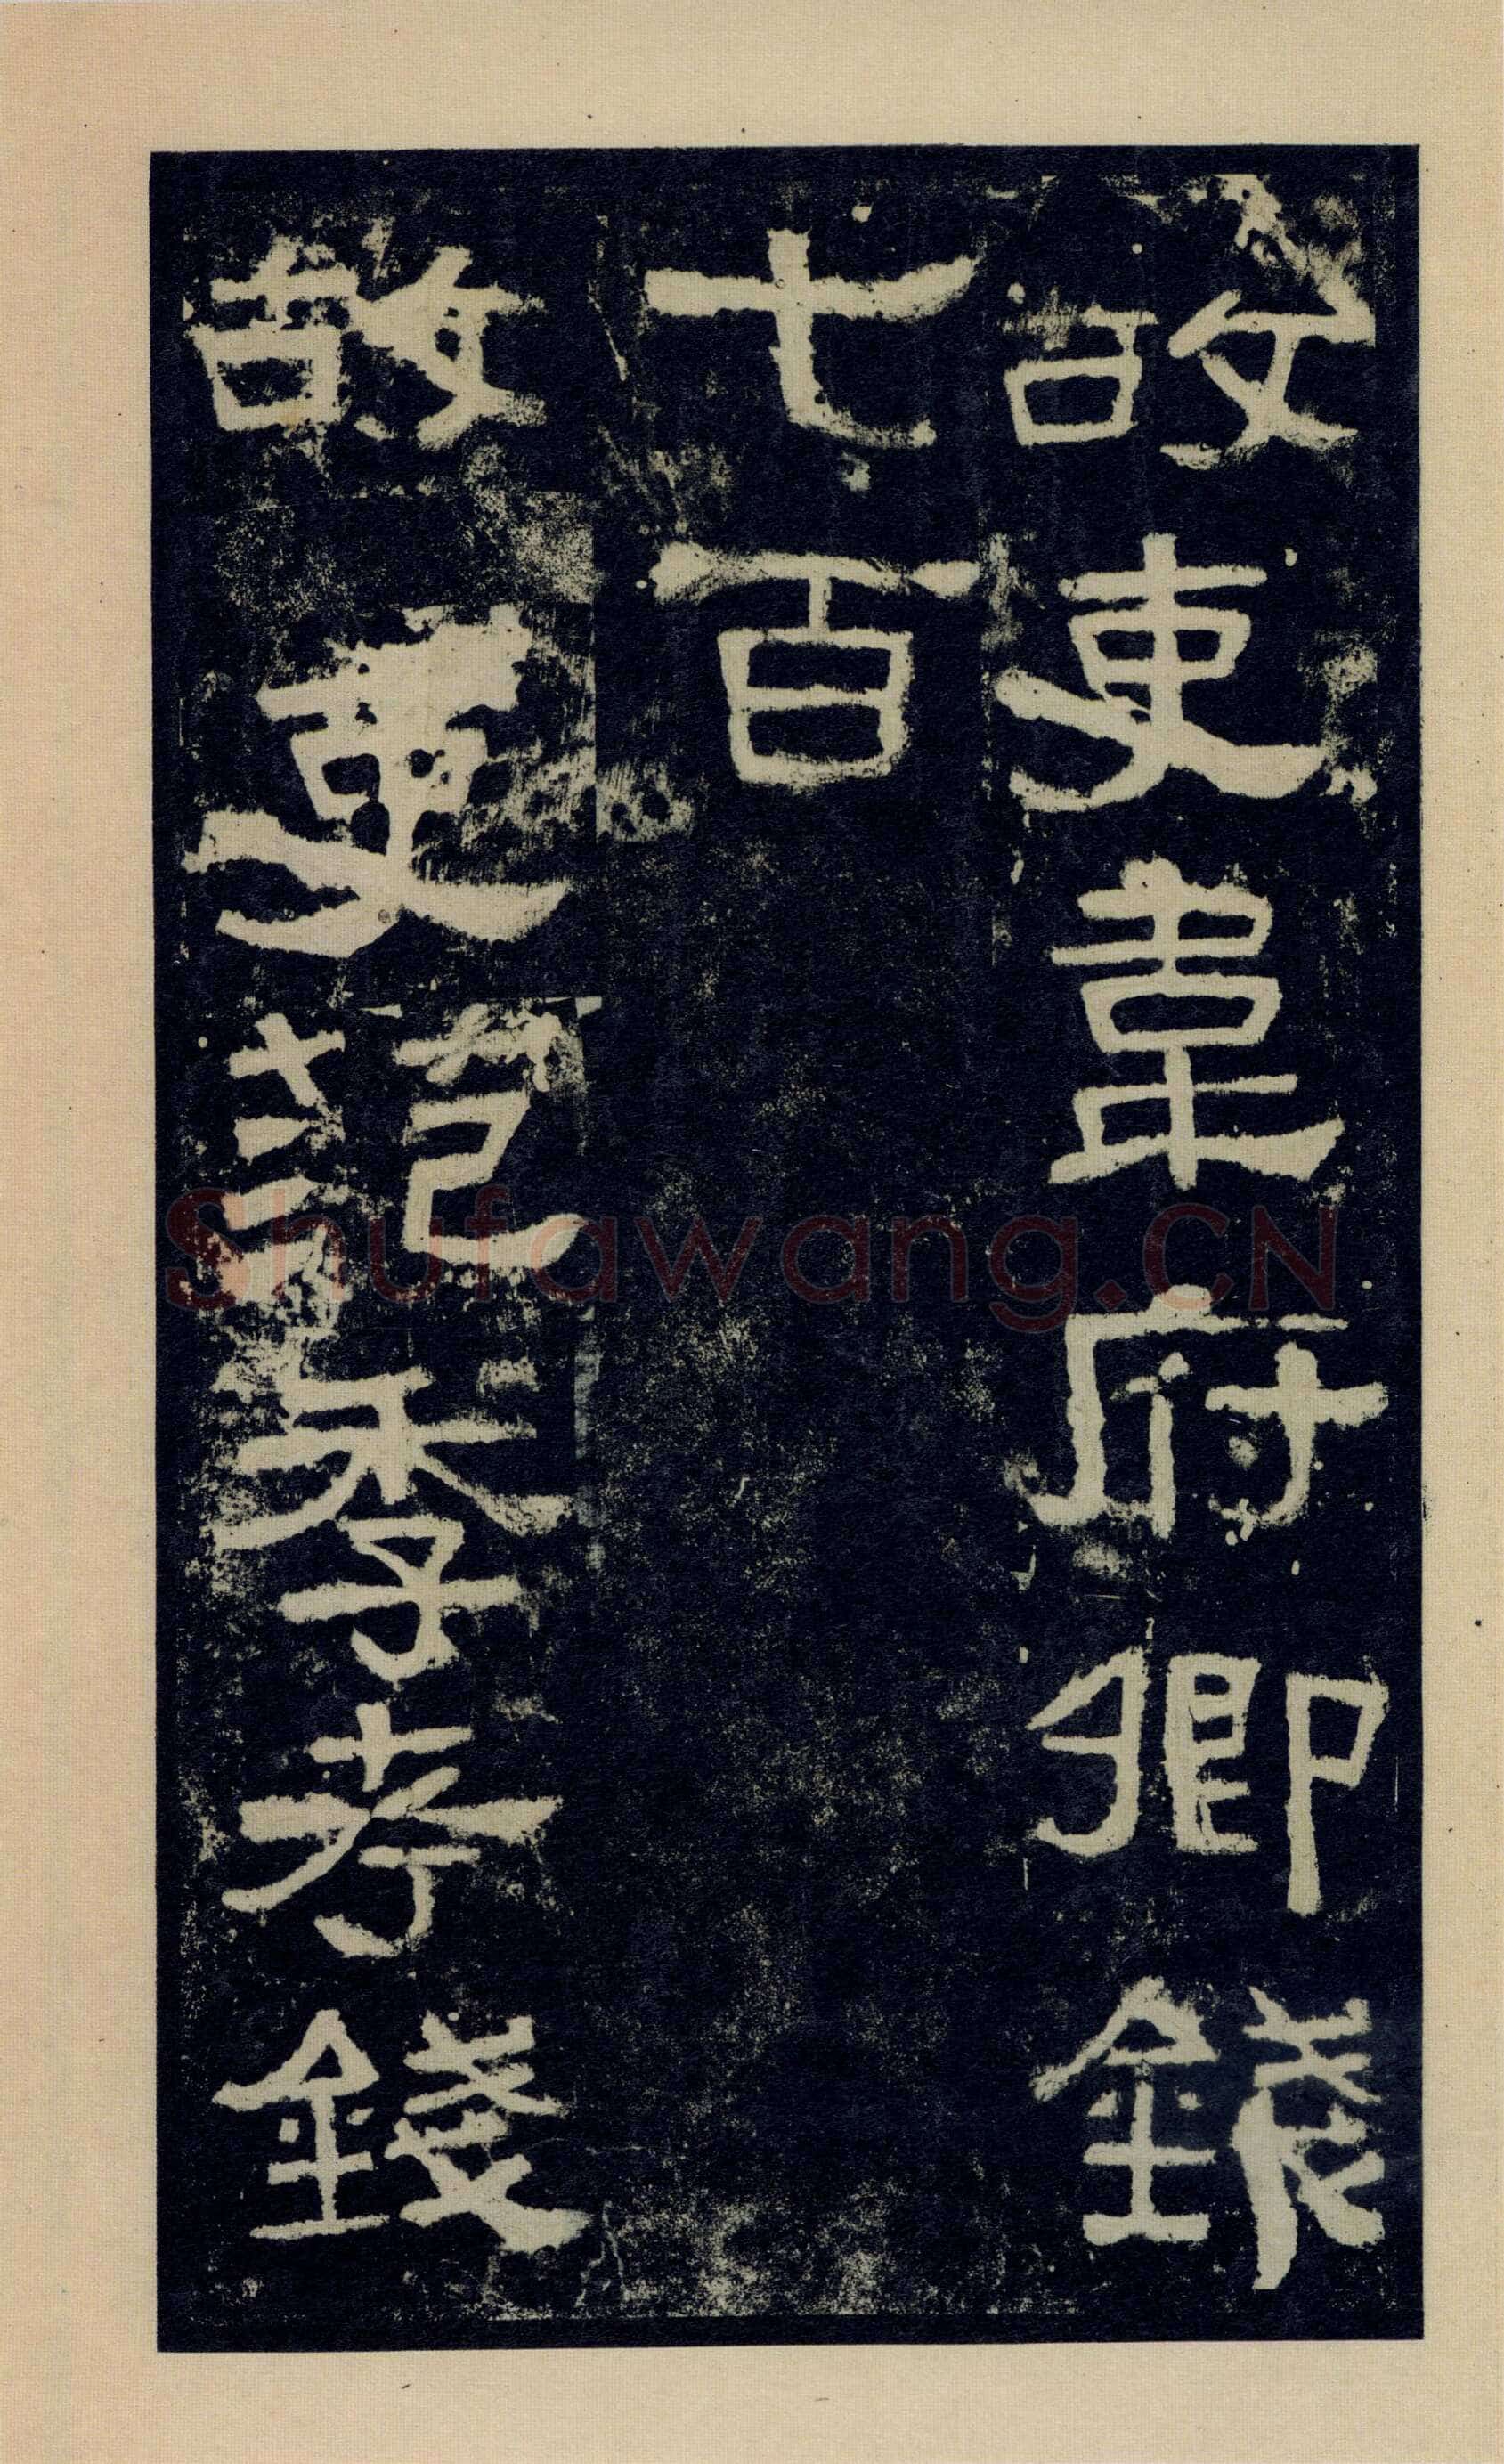 故吏韋府卿錢
七百
故吏范季考錢
Shufawang.CN